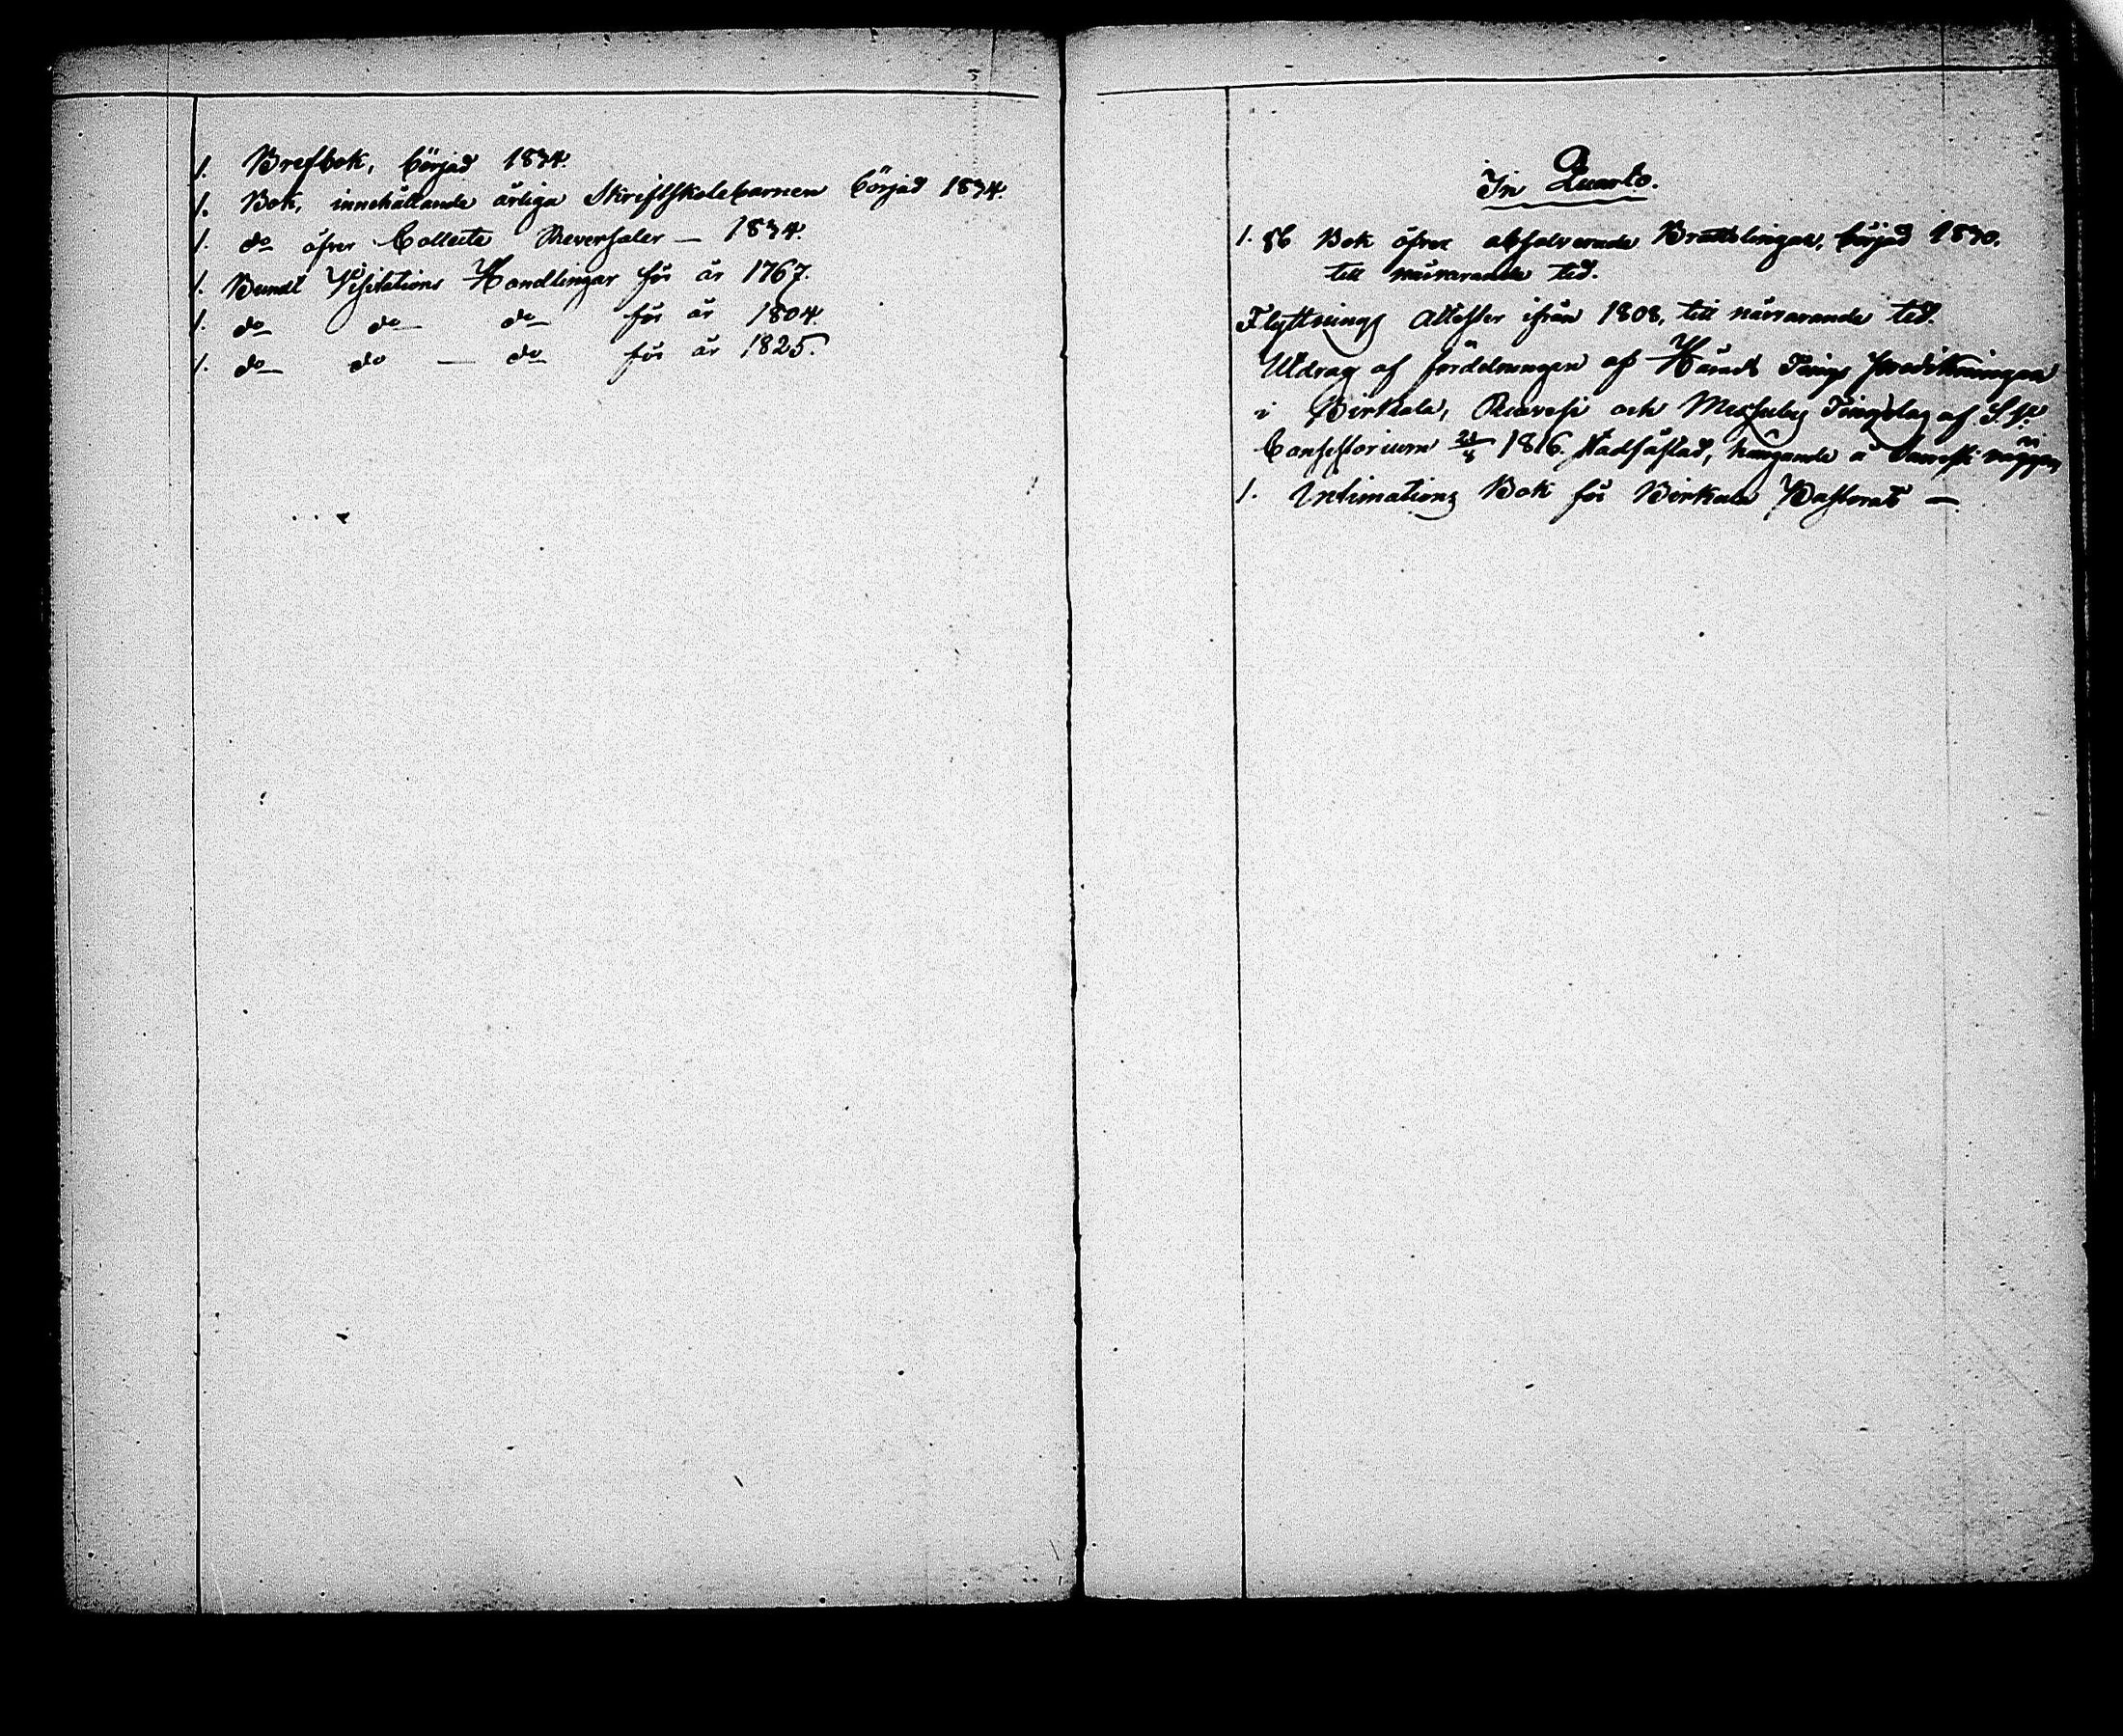 1. Brefbok, börjad 1834.
1. Bok, innehållande årliga Skriftskolebarnen börjad 1834.
1. do öfver Collecte Reversaler — 1834.
1. Bundt Visitations Handlingar för år 1767.
1. do do do för år 1804.
1. do do — do för år 1825.
In Quarto.
1. st Bok öfver absolverade Brottslingar, börjad 1830.
till närvarande tid.
Flyttnings Attester ifrån 1808, till närvarande tid.
Utdrag af fördelningen af Härads Tings predikningar
i Birkala, Ruovesi och Messuby Tingslag af
Consistorium 1816. Stadfästad, hängande å väggen
1. Intimations Bok för Birkala Pastorat —.